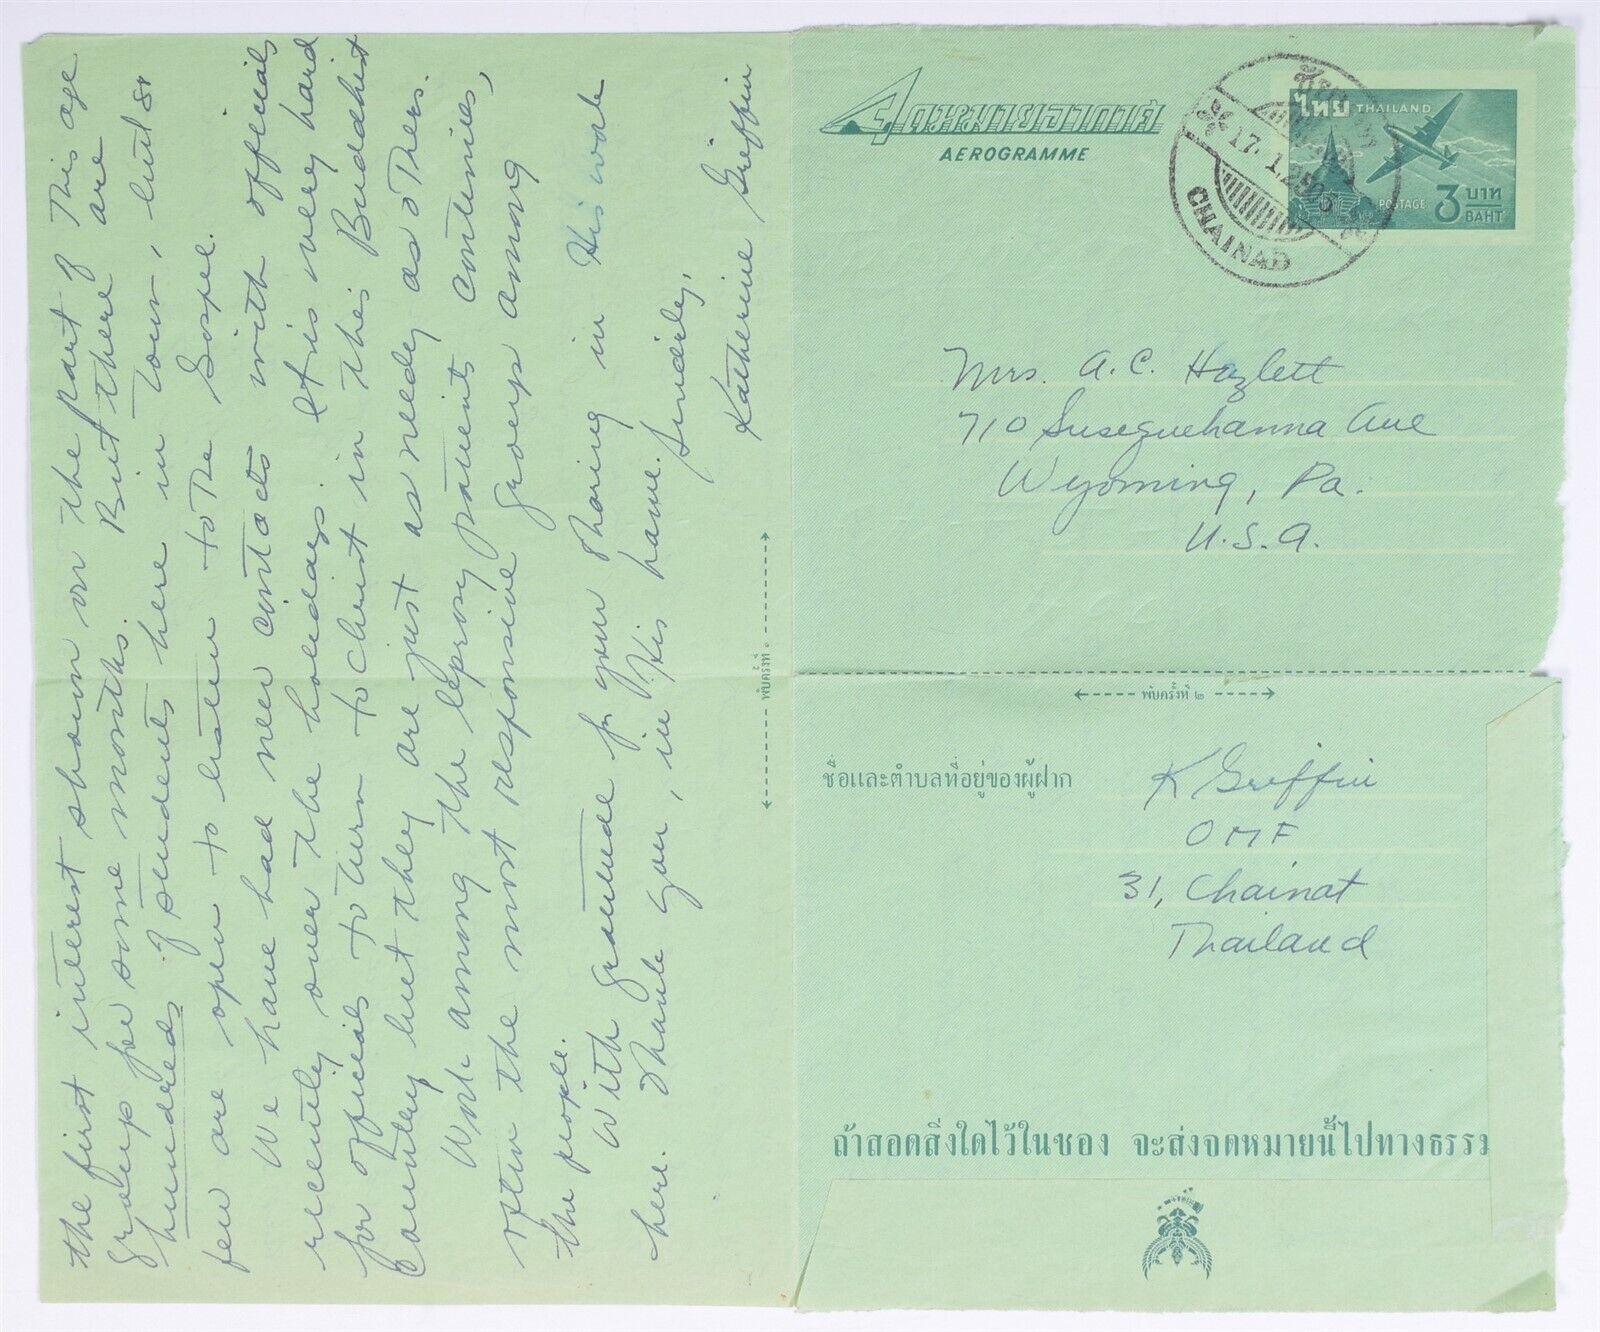 the first interest shown on the part of this age
group for some months. But there are
hundreds of students here in town, but so
few are open to listen to the Gospel.
We have had new contacts with officials
recently over the holidays. It is very hard
for officials to turn to Christ in this Buddhist
country but they are just as needy as others.
Work among the leprosy patients continues,
often the most responsive group among
the people.
With gratitude for your sharing in His work
here. Thank you, in His name.
Sincerely,
Katherine Griffin
จดหมายอากาศ
AEROGRAMME
ไทย THAILAND
POSTAGE 3 บาท
BAHT
17. 1. 250
CHAINAD
Mrs. A.C. Hazlett
710 Suseguehanna Ave
Wyoming, Pa.
U.S.A.
พับครั้งที่ ๑
พับครั้งที่ ๒
ชื่อและตำบลที่อยู่ของผู้ฝาก
K Griffin
OMF
31, Chainat
Thailand
ถ้าสอดสิ่งใดไว้ในซอง จะส่งจดหมายนี้ไปทางธรรม